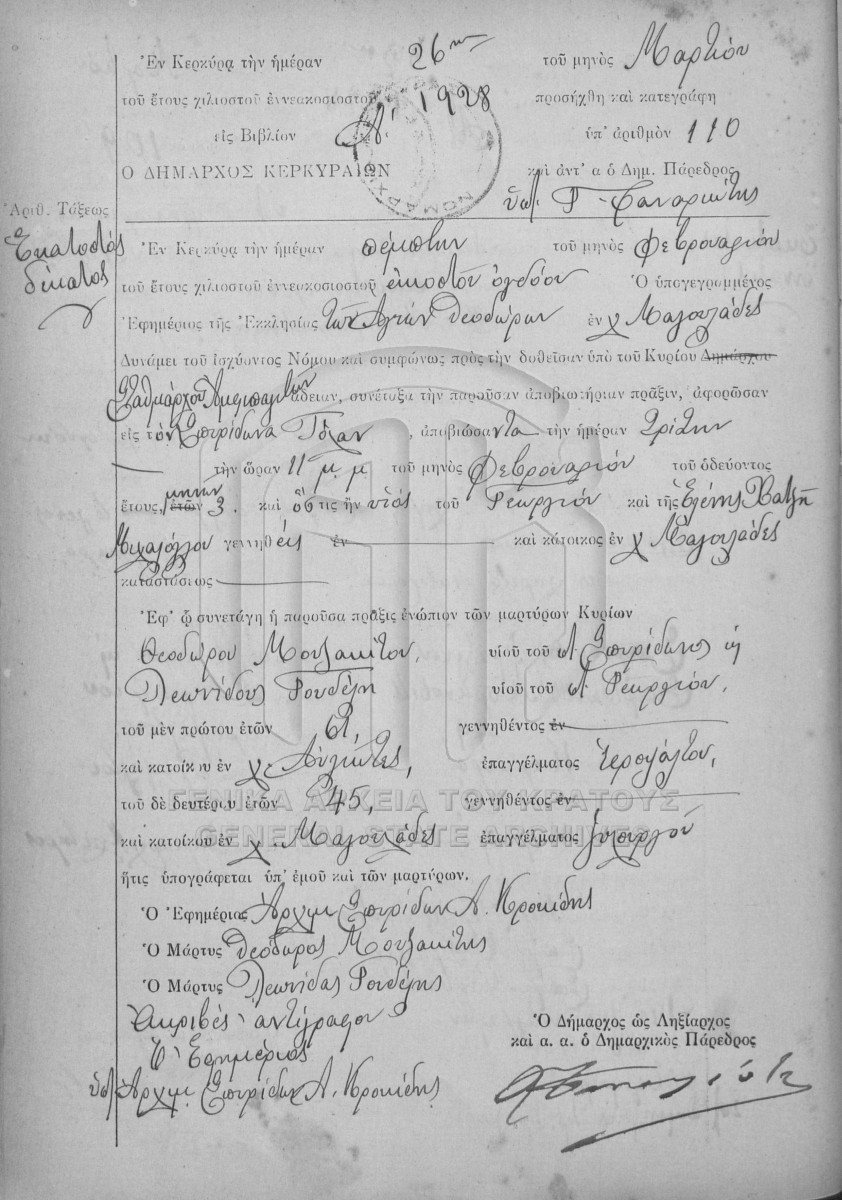 Ἐν Κερκύρᾳ τὴν ἡμέραν 26ην τοῦ μηνὸς Μαρτίου
τοῦ ἔτους χιλιοστοῦ ἐννεακοσιοστοῦ 1928 προσήχθη καὶ κατεγράφη
εἰς Βιβλίον Α' ὑπ' ἀριθμὸν 110
Ο ΔΗΜΑΡΧΟΣ ΚΕΡΚΥΡΑΙΩΝ καὶ ἀντ' α ὁ Δημ. Πάρεδρος
Γ. Φαναριώτης
Ἀριθ. Τάξεως
Ἑκατοστὸς
δέκατος
Ἐν Κερκύρᾳ τὴν ἡμέραν πέμπτην τοῦ μηνὸς Φεβρουαρίου
τοῦ ἔτους χιλιοστοῦ ἐννεακοσιοστοῦ εἰκοστοῦ ὀγδόου Ὁ ὑπογεγραμμένος
Ἐφημέριος τῆς Ἐκκλησίας τῶν Ἁγίων Θεοδώρων ἐν χ Μαγουλάδες
Δυνάμει τοῦ ἰσχύοντος Νόμου καὶ συμφώνως πρὸς τὴν δοθεῖσαν ὑπὸ τοῦ Κυρίου Δημάρχου
Σταθμάρχου ἄδειαν, συνέταξα τὴν παροῦσαν ἀποβιωτήριαν πρᾶξιν, ἀφορῶσαν
εἰς τὸν Σπυρίδωνα ἀποβιώσαντα τὴν ἡμέραν Τρίτην
τὴν ὥραν 11 μ.μ τοῦ μηνὸς Φεβρουαρίου τοῦ ὁδεύοντος
ἔτους, ἐτῶν μηνῶν 3. καὶ ὅστις ἦν υἱὸς τοῦ Γεωργίου καὶ τῆς Ἑλένης Χατζῆ
Μιχαλόλλου γεννηθεὶς ἐν καὶ κάτοικος ἐν χ Μαγουλάδες
καταστάσεως
Ἐφ' ᾧ συνετάγη ἡ παροῦσα πρᾶξις ἐνώπιον τῶν μαρτύρων Κυρίων
Θεοδώρου Μουζακίτου, υἱοῦ τοῦ Σπυρίδωνος ἢ
Λεωνίδου Γουδέλη υἱοῦ τοῦ Γεωργίου,
τοῦ μὲν πρώτου ἐτῶν 61, γεννηθέντος ἐν
καὶ κατοίκου ἐν χ. Αὐλιῶτες, ἐπαγγέλματος Ἱεροψάλτου,
τοῦ δὲ δευτέρου ἐτῶν 45, γεννηθέντος ἐν
καὶ κατοίκου ἐν χ. Μαγουλάδες ἐπαγγέλματος ξυλουργοῦ
ἥτις ὑπογράφεται ὑπ' ἐμοῦ καὶ τῶν μαρτύρων.
Ὁ Ἐφημέριος Ἀρχιμ Σπυρίδων Α. Κροκίδης
Ὁ Μάρτυς Θεόδωρος Μουζακίτης
Ὁ Μάρτυς Λεωνίδας Γουδέλης
Ἀκριβὲς ἀντίγραφον
Ὁ Ἐφημέριος
Ἀρχιμ. Σπυρίδων Α. Κροκίδης
Ὁ Δήμαρχος ὡς Ληξίαρχος
καὶ α. α. ὁ Δημαρχικὸς Πάρεδρος
ΓΕΝΙΚΑ ΑΡΧΕΙΑ ΤΟΥ ΚΡΑΤΟΥΣ
GENERAL STATE ARCHIVES